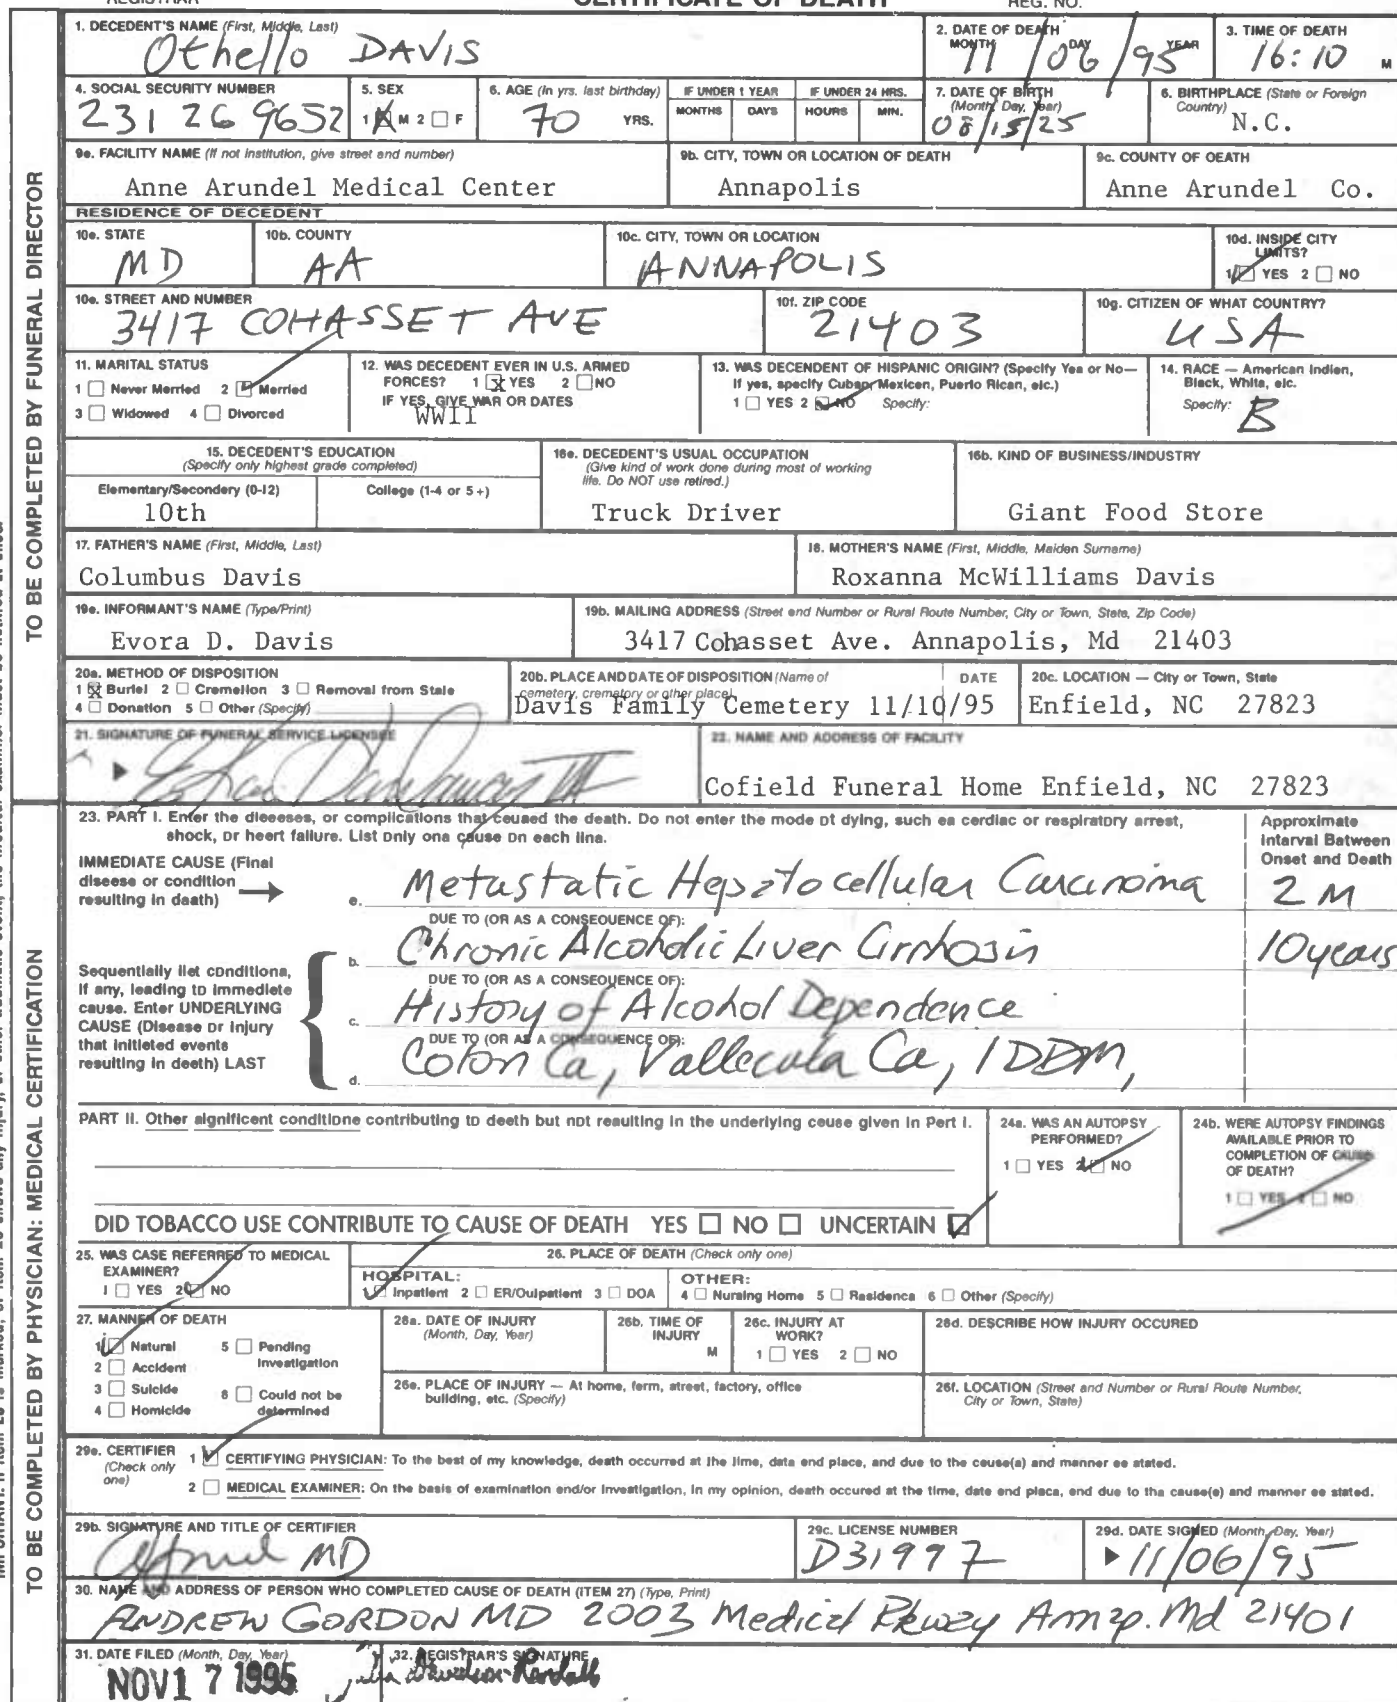 REGISTRAR CERTIFICATE OF DEATH REG. NO.
TO BE COMPLETED BY FUNERAL DIRECTOR
1. DECEDENT'S NAME (First, Middle, Last)
Othello DAVIS
2. DATE OF DEATH
MONTH DAY YEAR
11/06/95
3. TIME OF DEATH
16:10 M
4. SOCIAL SECURITY NUMBER
231 26 9652
5. SEX
1 M 2 F
6. AGE (In yrs. last birthday)
70 YRS.
IF UNDER 1 YEAR
MONTHS DAYS
IF UNDER 24 HRS.
HOURS MIN.
7. DATE OF BIRTH
(Month, Day, Year)
08/15/25
6. BIRTHPLACE (State or Foreign
Country)
N.C.
9e. FACILITY NAME (If not institution, give street and number)
Anne Arundel Medical Center
9b. CITY, TOWN OR LOCATION OF DEATH
Annapolis
9c. COUNTY OF DEATH
Anne Arundel Co.
RESIDENCE OF DECEDENT
10e. STATE
MD
10b. COUNTY
AA
10c. CITY, TOWN OR LOCATION
ANNAPOLIS
10d. INSIDE CITY
LIMITS?
1 YES 2 NO
10e. STREET AND NUMBER
3417 COHASSET AVE
10f. ZIP CODE
21403
10g. CITIZEN OF WHAT COUNTRY?
USA
11. MARITAL STATUS
1 Never Married 2 Married
3 Widowed 4 Divorced
12. WAS DECEDENT EVER IN U.S. ARMED
FORCES? 1 X YES 2 NO
IF YES, GIVE WAR OR DATES
WWII
13. WAS DECENDENT OF HISPANIC ORIGIN? (Specify Yes or No—
If yes, specify Cuban, Mexican, Puerto Rican, etc.)
1 YES 2 NO Specify:
14. RACE — American Indian,
Black, White, etc.
Specify: B
15. DECEDENT'S EDUCATION
(Specify only highest grade completed)
Elementary/Secondary (0-12) College (1-4 or 5+)
10th
16e. DECEDENT'S USUAL OCCUPATION
(Give kind of work done during most of working
life. Do NOT use retired.)
Truck Driver
16b. KIND OF BUSINESS/INDUSTRY
Giant Food Store
17. FATHER'S NAME (First, Middle, Last)
Columbus Davis
18. MOTHER'S NAME (First, Middle, Maiden Surname)
Roxanna McWilliams Davis
19e. INFORMANT'S NAME (Type/Print)
Evora D. Davis
19b. MAILING ADDRESS (Street and Number or Rural Route Number, City or Town, State, Zip Code)
3417 Cohasset Ave. Annapolis, Md 21403
20a. METHOD OF DISPOSITION
1 X Burial 2 Cremation 3 Removal from State
4 Donation 5 Other (Specify)
20b. PLACE AND DATE OF DISPOSITION (Name of DATE
cemetery, crematory or other place)
Davis Family Cemetery 11/10/95
20c. LOCATION — City or Town, State
Enfield, NC 27823
21. SIGNATURE OF FUNERAL SERVICE LICENSEE
22. NAME AND ADDRESS OF FACILITY
Cofield Funeral Home Enfield, NC 27823
TO BE COMPLETED BY PHYSICIAN: MEDICAL CERTIFICATION
23. PART I. Enter the diseases, or complications that caused the death. Do not enter the mode of dying, such as cardiac or respiratory arrest,
shock, or heart failure. List only one cause on each line.
Approximate
Interval Between
Onset and Death
IMMEDIATE CAUSE (Final
disease or condition
resulting in death)
e. Metastatic Hepatocellular Carcinoma 2 M
DUE TO (OR AS A CONSEQUENCE OF):
b. Chronic Alcoholic Liver Cirrhosis 10 years
Sequentially list conditions,
if any, leading to immediate
cause. Enter UNDERLYING
CAUSE (Disease or injury
that initiated events
resulting in death) LAST
DUE TO (OR AS A CONSEQUENCE OF):
c. History of Alcohol Dependence
DUE TO (OR AS A CONSEQUENCE OF):
d. Colon Ca, Vallecula Ca, IDDM,
PART II. Other significant conditions contributing to death but not resulting in the underlying cause given in Part I.
24a. WAS AN AUTOPSY
PERFORMED?
1 YES 2 NO
24b. WERE AUTOPSY FINDINGS
AVAILABLE PRIOR TO
COMPLETION OF CAUSE
OF DEATH?
1 YES 2 NO
DID TOBACCO USE CONTRIBUTE TO CAUSE OF DEATH YES NO UNCERTAIN
25. WAS CASE REFERRED TO MEDICAL
EXAMINER?
1 YES 2 NO
26. PLACE OF DEATH (Check only one)
HOSPITAL:
1 Inpatient 2 ER/Outpatient 3 DOA
OTHER:
4 Nursing Home 5 Residence 6 Other (Specify)
27. MANNER OF DEATH
1 Natural 5 Pending
Investigation
2 Accident
3 Suicide 8 Could not be
determined
4 Homicide
28a. DATE OF INJURY
(Month, Day, Year)
26b. TIME OF
INJURY
M
26c. INJURY AT
WORK?
1 YES 2 NO
28d. DESCRIBE HOW INJURY OCCURED
26e. PLACE OF INJURY — At home, farm, street, factory, office
building, etc. (Specify)
26f. LOCATION (Street and Number or Rural Route Number,
City or Town, State)
29e. CERTIFIER
(Check only
one)
1 CERTIFYING PHYSICIAN: To the best of my knowledge, death occurred at the time, data end place, and due to the cause(a) and manner ee stated.
2 MEDICAL EXAMINER: On the basis of examination end/or Investigation, in my opinion, death occured at the time, date end placa, end due to tha cause(e) and manner ee stated.
29b. SIGNATURE AND TITLE OF CERTIFIER
MD
29c. LICENSE NUMBER
D31997
29d. DATE SIGNED (Month, Day, Year)
11/06/95
30. NAME AND ADDRESS OF PERSON WHO COMPLETED CAUSE OF DEATH (ITEM 27) (Type, Print)
ANDREW GORDON MD 2003 Medical Pkwey Annap. Md 21401
31. DATE FILED (Month, Day, Year)
NOV 17 1995
32. REGISTRAR'S SIGNATURE